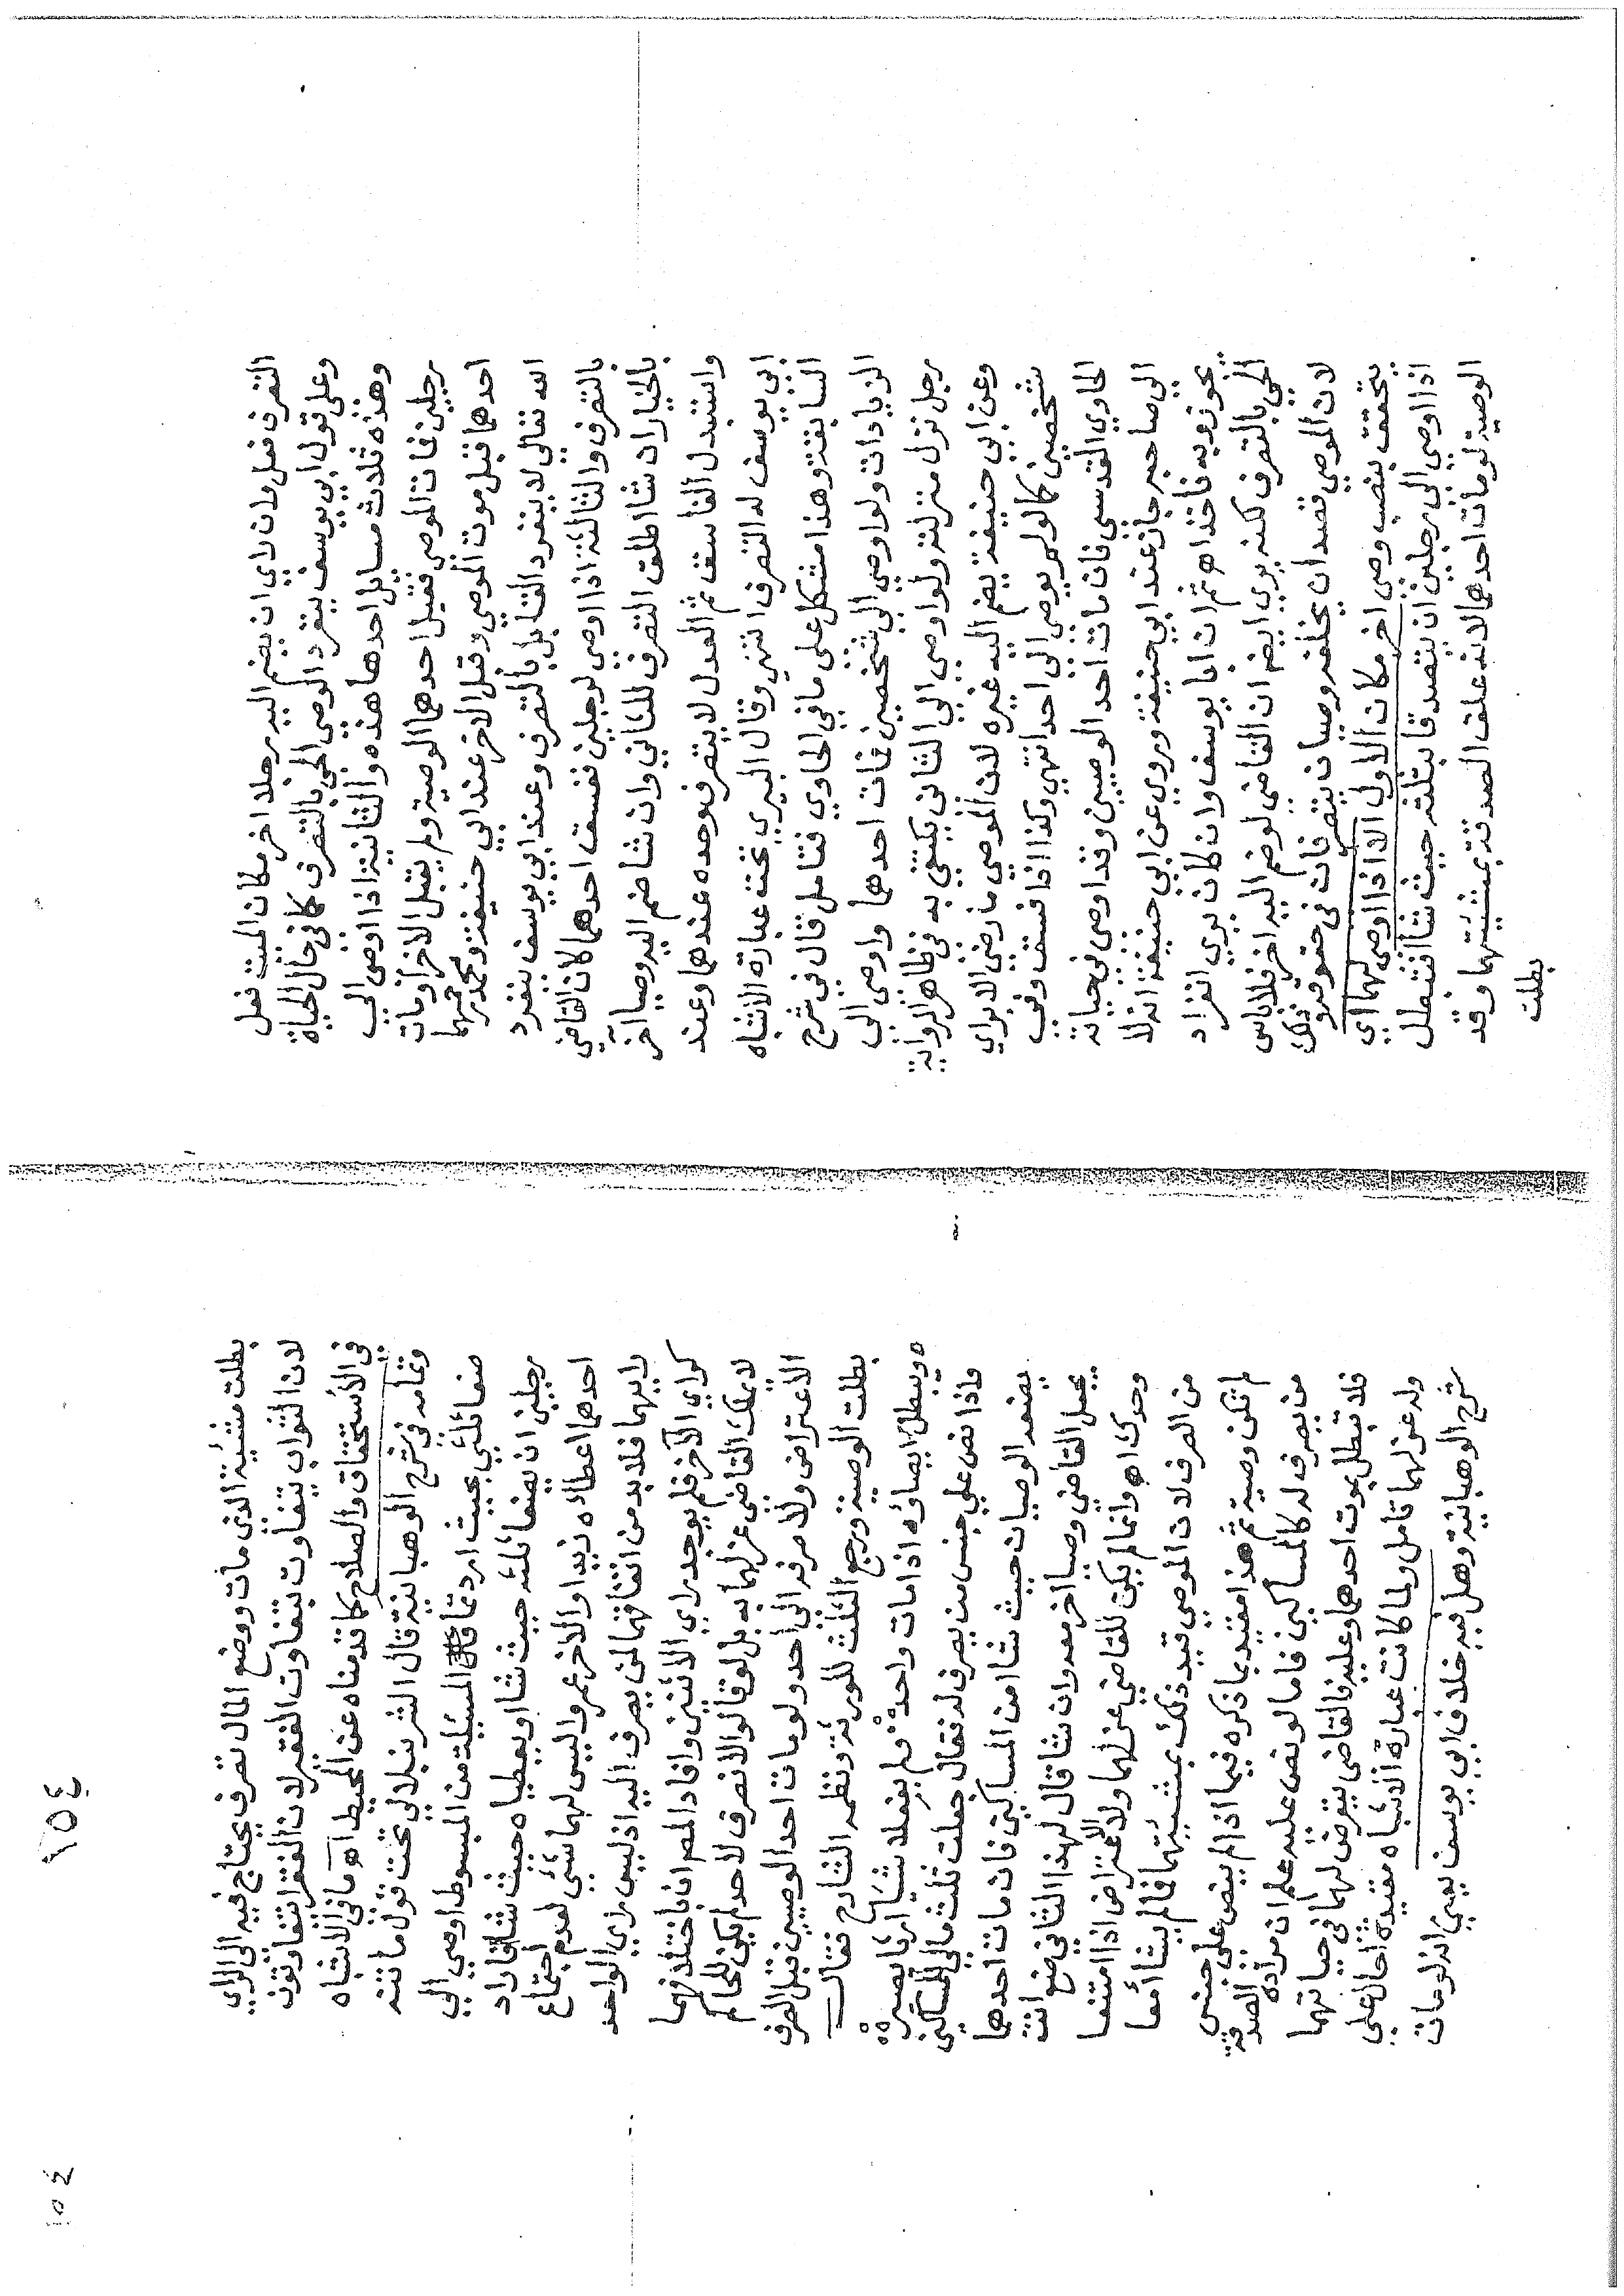 التصرف فعل وان راي ان يضم اليه رجلا اخر مكان الميت فعل
وعلى قول ابي يوسف يتفرد الوصي الحي بالتصرف كما في حال الحياة
وهذه ثلاث مسايل احدها هذه والثانية اذا اوصى الي
رجلين فمات الموصي فقبل احدهما الوصية ولم يقبل الاخر او مات
احدهما قبل موت الموصي وقبل الاخر عند ابي حنيفة ومحمد رحمهما
الله تعالي لا ينفرد القابل بالتصرف وعند ابي يوسف ينفرد
بالتصرف والثالثة اذا اوصى لرجلين ففسق احدهما كان القاضي
بالخيار ان شا اطلق التصرف للثاني وان شا ضم اليه وصيا آخر
واستبدل الفاسق ثم العدل لا يتصرف وحده عندهما وعند
ابي يوسف له التصرف انتهى وقال البيري تحت عبارة الاشباه
السابقة وهذا مشكل على ما في الحاوي فتامل قال في شرح
الزيادات ولو اوصي الي شخصين فمات احدهما واوصى الى
رجل نزل منزلته ولو اوصى الى الثاني يكتفي به في ظاهر الرواية
وعن ابي حنيفة يضم اليه غيره لان الموصي ما رضي الا براي
شخصين كما لو لم يوصي الى احد انتهي وكذا اذا فسق وفي
الحاوي القدسي فان مات احد الوصيين وقد اوصى في حياته
الى صاحبه جاز عند ابي حنيفة وروي عن ابي حنيفة انه لا
يجوز وبه فاخذ اهـ ثم ان ابا يوسف وان كان يري انفراد
الحي بالتصرف لكنه يري ايضا ان القاضي لو ضم اليه اخر فلا باس
لان الموصي قصد ان يخلفه وصيان يتصرفان في حقوقه وذلك
يتحقق بنصب وصي اخر مكان الاول الا اذا اوصى لهما اي
اذا اوصي الى رجلين ان يتصدقا بثلثه حيث شاا فتبطل
الوصية لو مات احدهما لانه علق الصدقة بمشيئتهما وقد
بطلت
١٥٤
بطلت مشيئة الذي مات ووضع المال تصرف يحتاج فيه الى الراي
لان الثواب يتفاوت بتفاوت الفقير لان الفقرا يتفاوتون
في الاستحقاق والصلاح كما قدمناه عن المحيط اهـ ما في الاشباه
وتمامه في شرح الوهبانية قال الشرنبلالي تحت قول ماتنه
ضعا ثلثي بحيث اردتما قال المسيلة من المبسوط اوصي الي
رجلين ان يضعا ثلثه حيث شاا او يعطياه حيث شاا فاراد
احدهما اعطاه زيدا والاخر عمرو اليس لهما شئ لعدم اجتماع
رايهما فلا بد من اتفاقهما لمن يصرف اليه اذ ليس راي الواحد
كراي الآخر فلم يوجد راي الاثنين وافاد المص ان باختلافهما
لا يملك القاضي عزلهما به بل لو قالوا لا نصرف لاحد لم يكن للحاكم
الاعتراض ولا صرفه الى احد ولو مات احد الوصيين قبل الصرف
بطلت الوصية ورجع الثلث للورثة ونظمه الشارح فقال
ويبطل ايصاؤه اذا مات واحد ولم يفعلا شيا
واذا نص علي جنس من يصرف له فقال جعلت ثلث مالي للمساكين
يضعه الوصيان حيث شاا من المساكين فان مات احدهما
يجعل القاضي وصيا اخر معه وان شا قال لهذا الثاني ضع انت
وحدك اهـ وانما لم يكن للقاضي عزلهما ولا الاعتراض اذا امتنعا
من الصرف لان الموصي قيد ذلك بمشيئتهما فما لم يشاا معا
لم تكن وصية ثم هذا مقيد بما ذكره فيما اذا لم ينص على جنس
من يصرف له كالمساكين فاما لو نص عليه علم ان مراده الصدقة
فلا تبطل بموت احدهما وعليه فالقاضي يتعرض لهما في حياتهما
وله عزلهما تامل ولما كانت عبارة الاشباه مقيدة احال علي
شرح الوهبانية وهل فيه خلاف ابي يوسف يعني انه لو مات
١٥٤